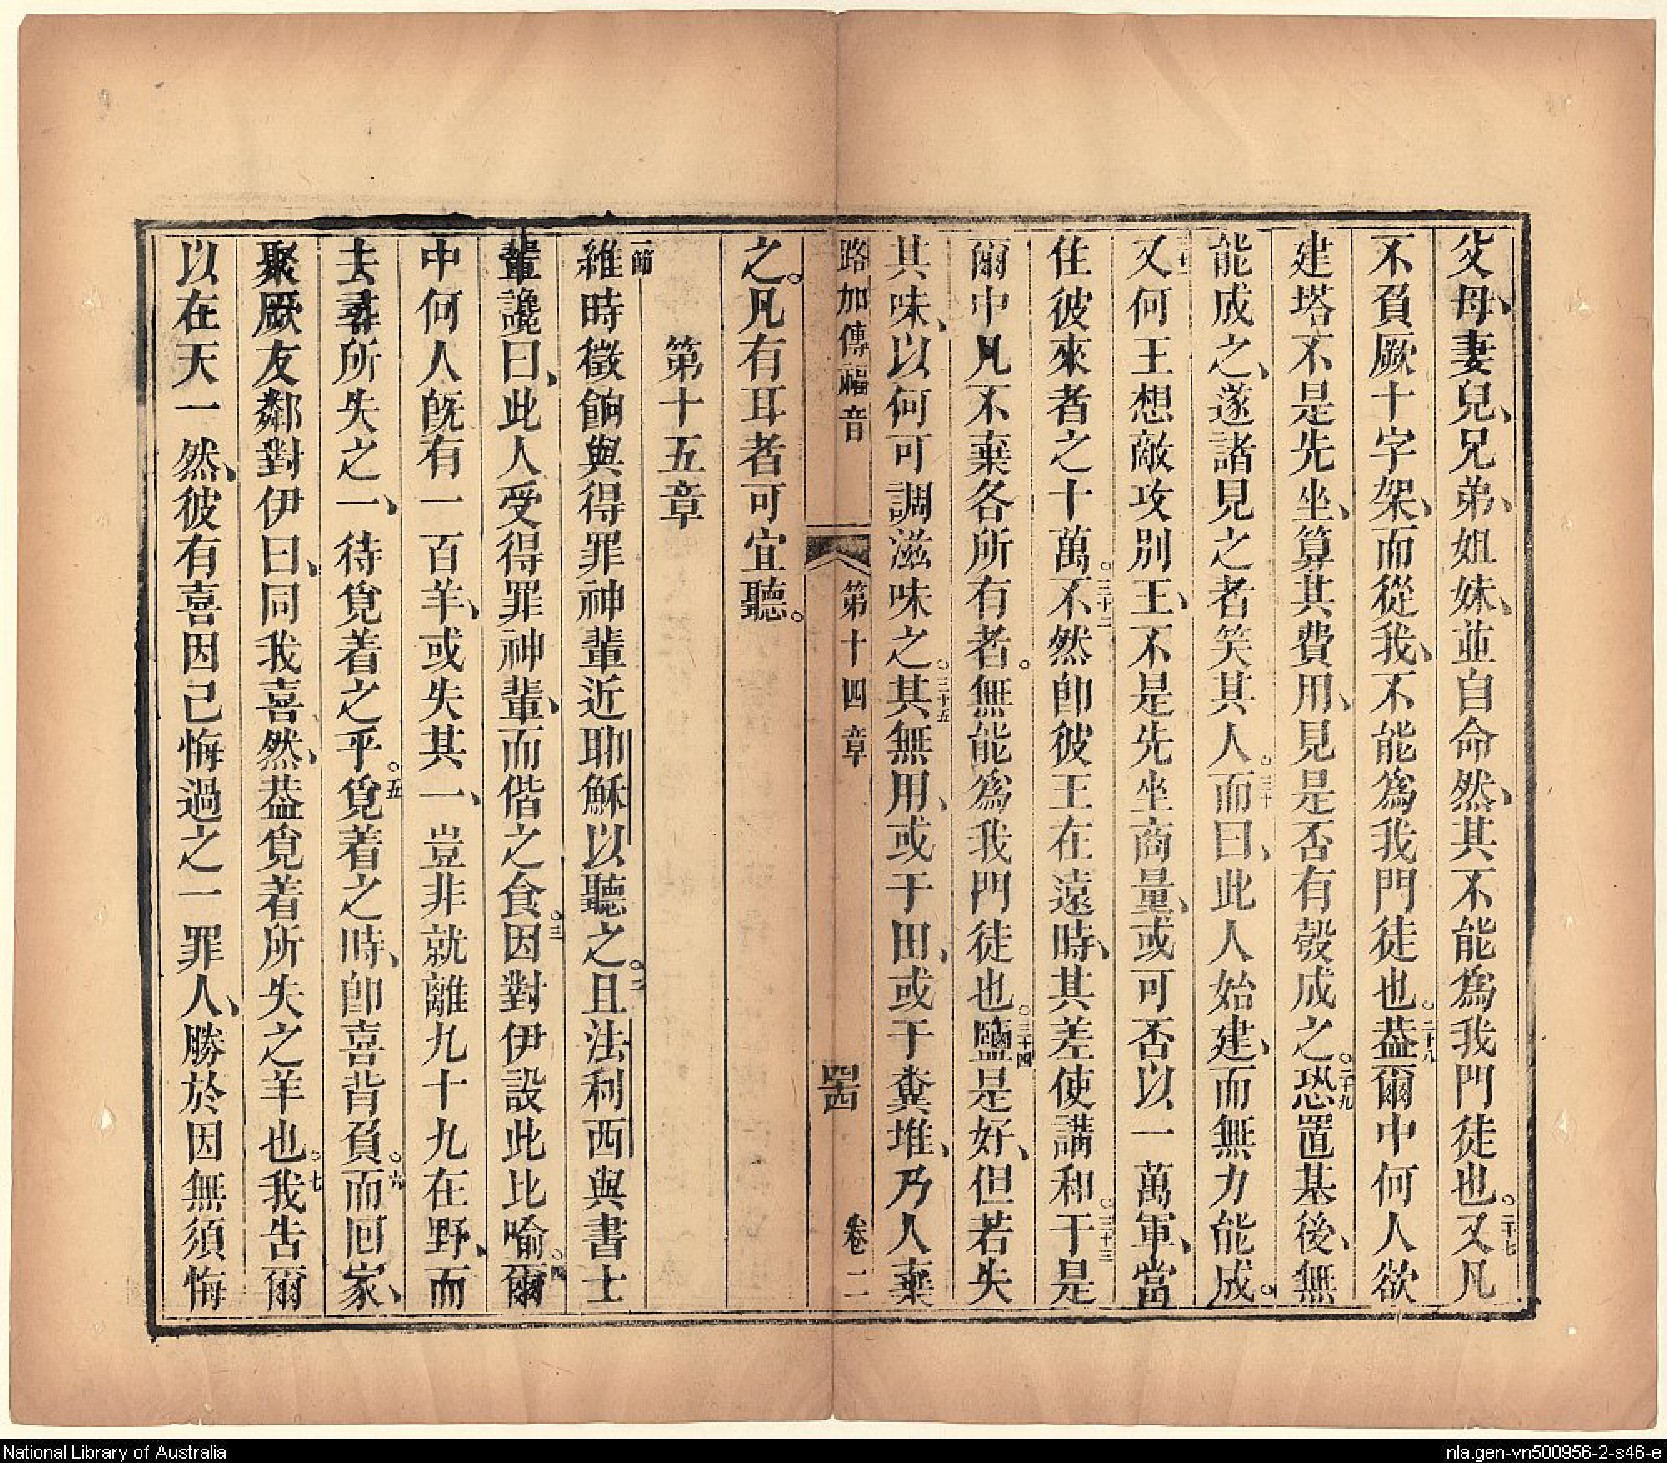 父母、妻兒、兄弟、姐妹、並自命然、其不能為我門徒也。二十七又凡
不負厥十字架、而從我、不能為我門徒也。二十八葢爾中何人欲
建塔不是先坐、算其費用、見是否有彀成之。二十九恐置基後、無
能成之、遂諸見之者笑其人。三十而曰、此人始建、而無力能成。
又何王想敵攻別王、不是先坐商量、或可否以一萬軍、當
住彼來者之十萬。三十二不然卽彼王在遠時、其差使講和。三十三于是
爾中凡不棄各所有者。無能為我門徒也。三十四鹽是好、但若失
其味、以何可調滋味之。三十五其無用、或于田、或于糞堆、乃人棄
路加傳福音 第十四章 四十四 卷二
之。凡有耳者可宜聽。
第十五章
一節
維時徵餉與得罪神輩近耶穌以聽之。二且法利西與書士
輩讒曰、此人受得罪神輩、而偕之食。三因對伊設此比喻。四爾
中何人旣有一百羊、或失其一、豈非就離九十九在野、而
去尋所失之一、待覓着之乎。五覓着之時、卽喜背負。六而囘家、
聚厥友鄰對伊曰、同我喜然、葢覓着所失之羊也。七我告爾
以在天一然、彼有喜因己悔過之一罪人、勝於因無須悔
National Library of Australia
nla.gen-vn500956-2-s46-e